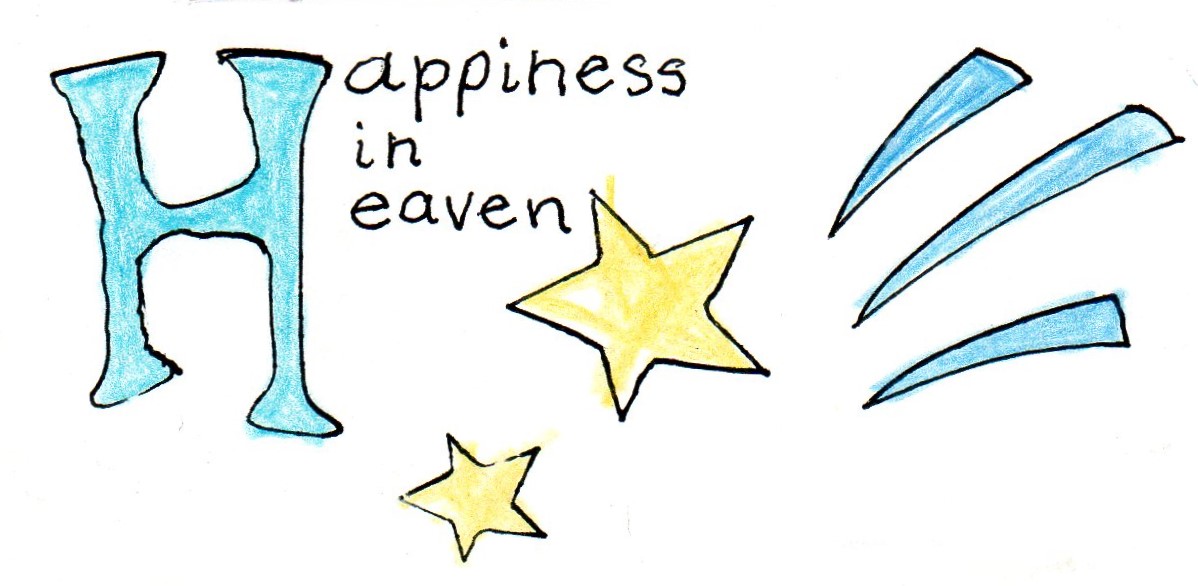 Happiness
in
eaven